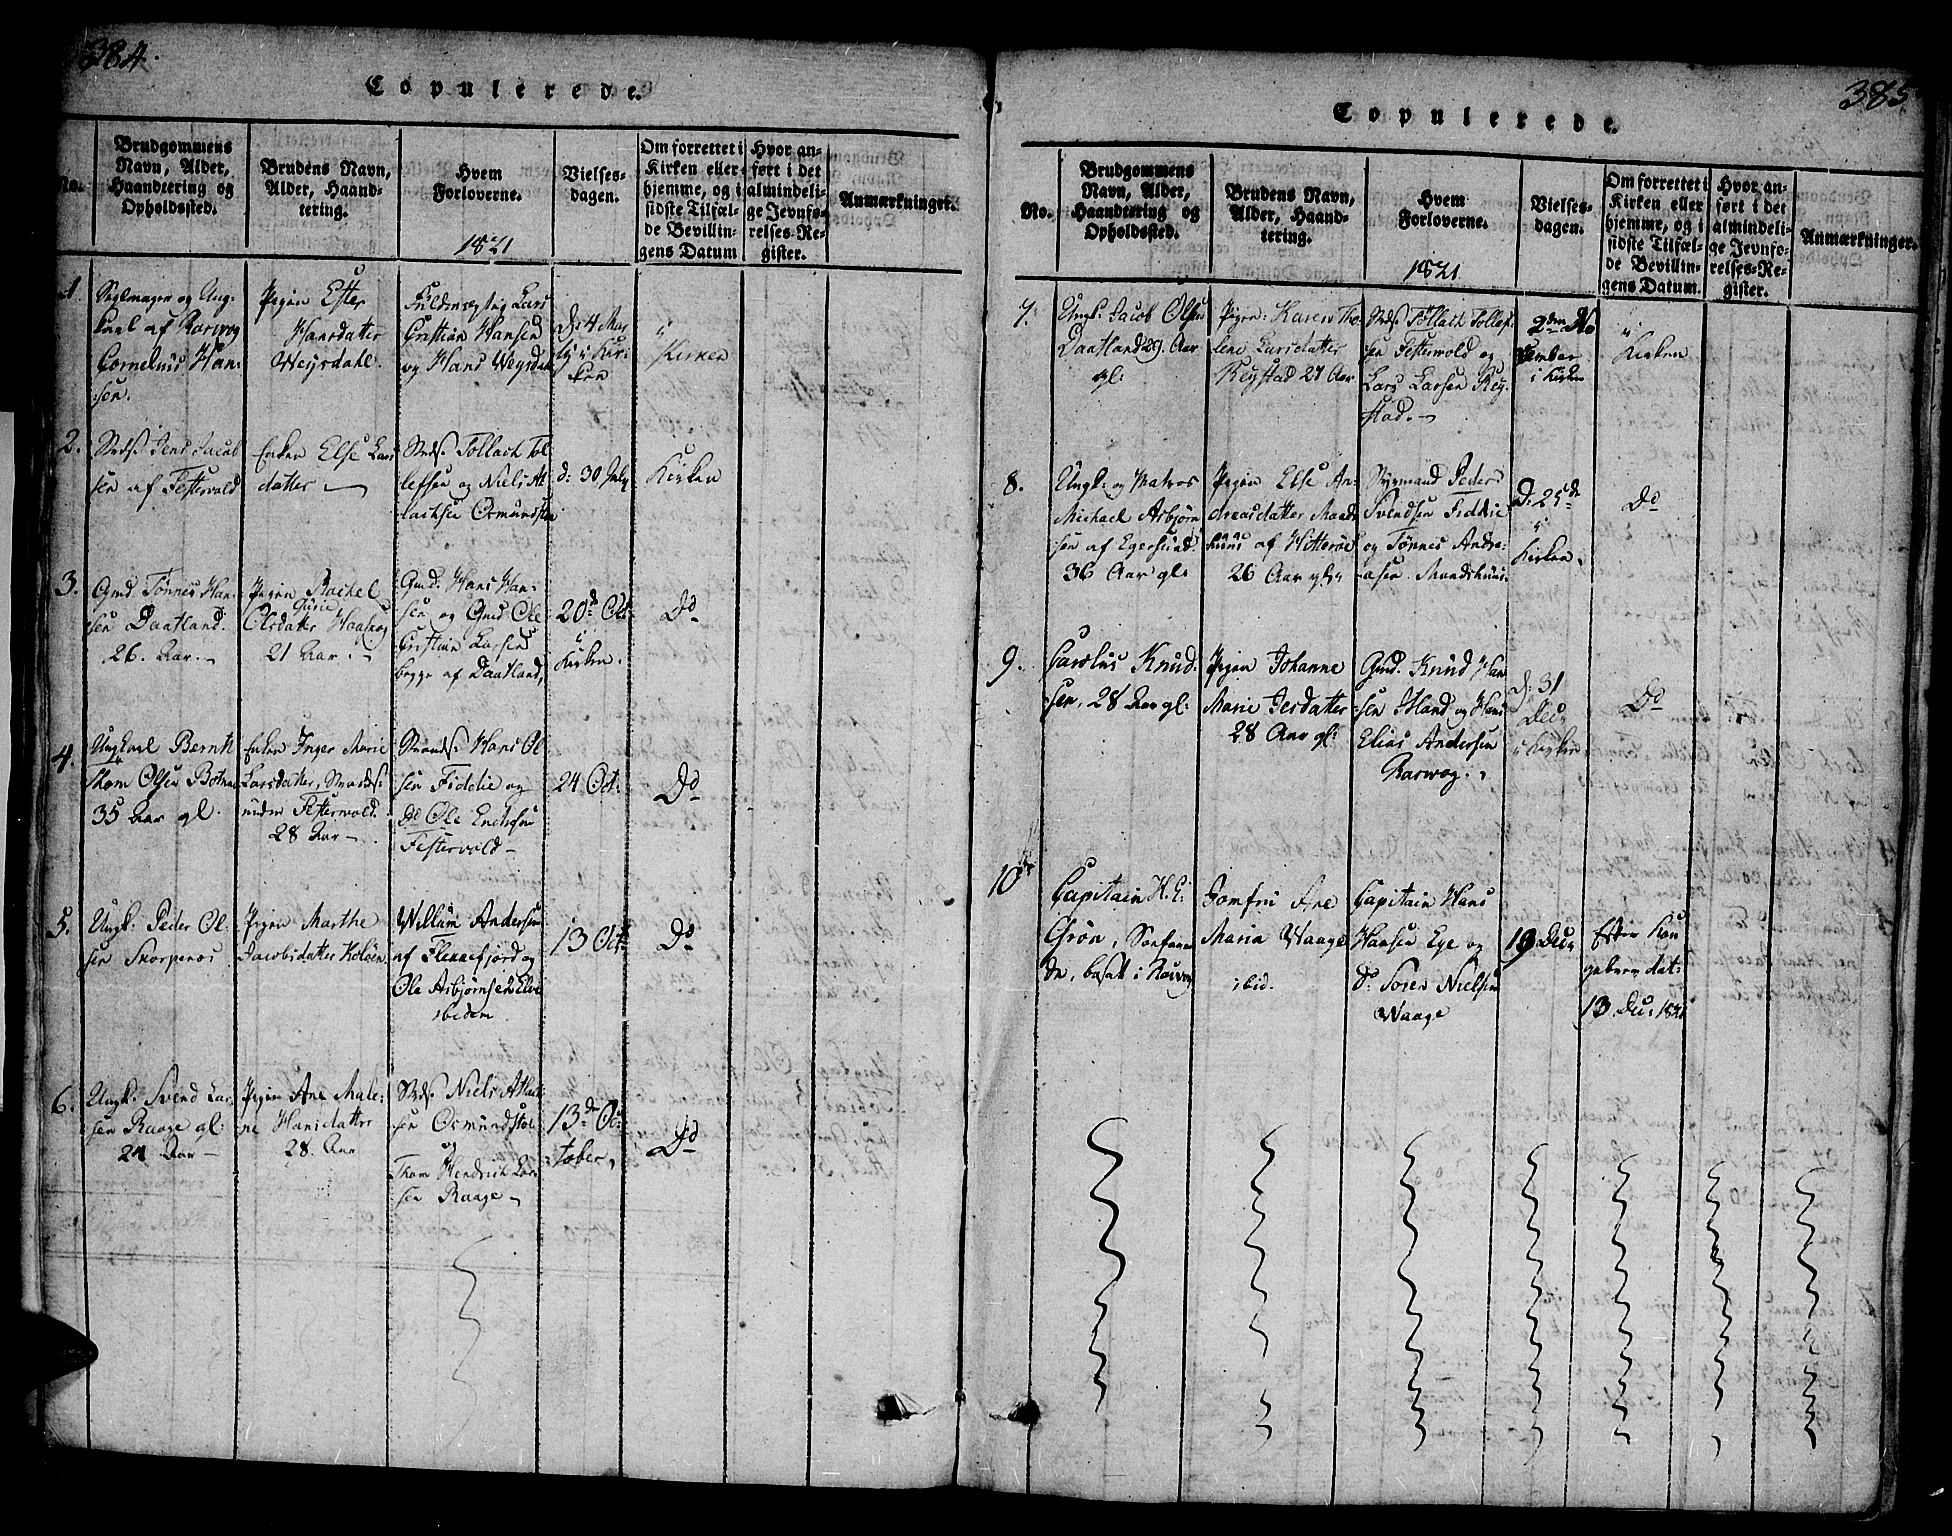 384.
Copulerede.
No.
Brudgommens
Navn, Alder,
Haandtering og
Opholdssted.
Brudens Navn,
Alder, Haand-
tering.
Hvem
Forloverne.
1821
Vielses-
dagen.
Om forrettet i
Kirken eller
hjemme, og i
sidste Tilfæl-
de Bevillin-
gens Datum
Hvor an-
ført i det
almindeli-
ge Jevnfø-
relses-Re-
gister.
Anmærkninger.
1
Seglmager og Ung-
karl af Raswog
Cornelius Han-
sen.
Pigen Ester
Hansdatter
Weysdahl.
Fuldmægtig Lars
Cristian Hansen
og Hans Weysdahl
d: 4
Kir-
ken
Kirken
2.
Jens Jacob
sen af Festervold
Enken Else Lars
datter
Tollach Tol
lefsen og Niels At
lachsen Osmundsten
d: 30 July
Kirken
3.
Gmd. Tønnes Han-
sen Daatland.
26. Aar.
Pigen Rachel
Gurie
Olsdatter Haaskog
21 Aar.
Gmd: Hans Han-
sen og Gmd Ole
Cristian Larsen
begge af Daatland,
20de Oct:
i
Kirken.
Do
4.
Ungkarl Bernt
Thom Olsen Botne
35 Aar gl.
Enken Inger Marie
Larsdatter,
under Festervold.
28 Aar
Hans Ol
sen Fiddie og
Do Ole Endresen
Festervold
24 Oct:
Do
5.
Ungk: Peder Ol-
sen Skorpenes
Pigen Marthe
Jacobsdatter Koløen
Willum Andersen
af Flekkefjord og
Ole Asbjørnsen Elve
ibidem
13 Oct:
Do
6.
Ungk: Svend Lar
sen Raage gl:
24 Aar
Pigen Ane Male-
ne Hansdatter
28. Aar
Niels Atlach
sen Osmundsten
og
Thom Hendrich Lar
sen Raage
13de Oc-
tober,
Do
385
Copulerede.
No.
Brudgommens
Navn, Alder,
Haandtering og
Opholdssted.
Brudens Navn,
Alder, Haand-
tering.
Hvem
Forloverne.
1821
Vielses-
dagen.
Om forrettet i
Kirken eller
hjemme, og i
sidste Tilfæl-
de Bevillin-
gens Datum.
Hvor an-
ført i det
almindeli-
ge Jevnfø-
relses-Re-
gister.
Anmærkninger.
7.
Ungk: Jacob Olsen
Daatland 29. Aar
gl:
Pigen: Karen Tho-
lene Larsdatter
Reystad 27 Aar
Tollach Tollef-
sen Festervold og
Lars Larsen Rey-
stad.
2den No
vember
i Kirken
i
Kirken
8.
Ungk: og Matros
Michael Asbjørn
sen af Egersund.
36 Aar gl:
Pigen Else An-
dreasdatter Mands
huus af Hitterøe
26 Aar gl
Peder
Svendsen Fiddie
og Tønnes Andre-
asen Mandshuus.
D: 25de
i
Kirken.
Do
9.
Carolus Knud-
sen, 28 Aar gl:
Pigen Johanne
Marie Jesdatter
28 Aar gl:
Gmd. Knud Han
sen og Hans
Elias Andersen
Raswog.
d: 31
Dec
i Kirken
Do
10
Capitain H. E:
Grøn,
Jomfru Ane
Maria Waage
ibid.
Capitain Hans
Hansen Eye og
do: Søren Nielsen
Waage
19 Dec
Efter Kon
dat:
13. Dec: 1821